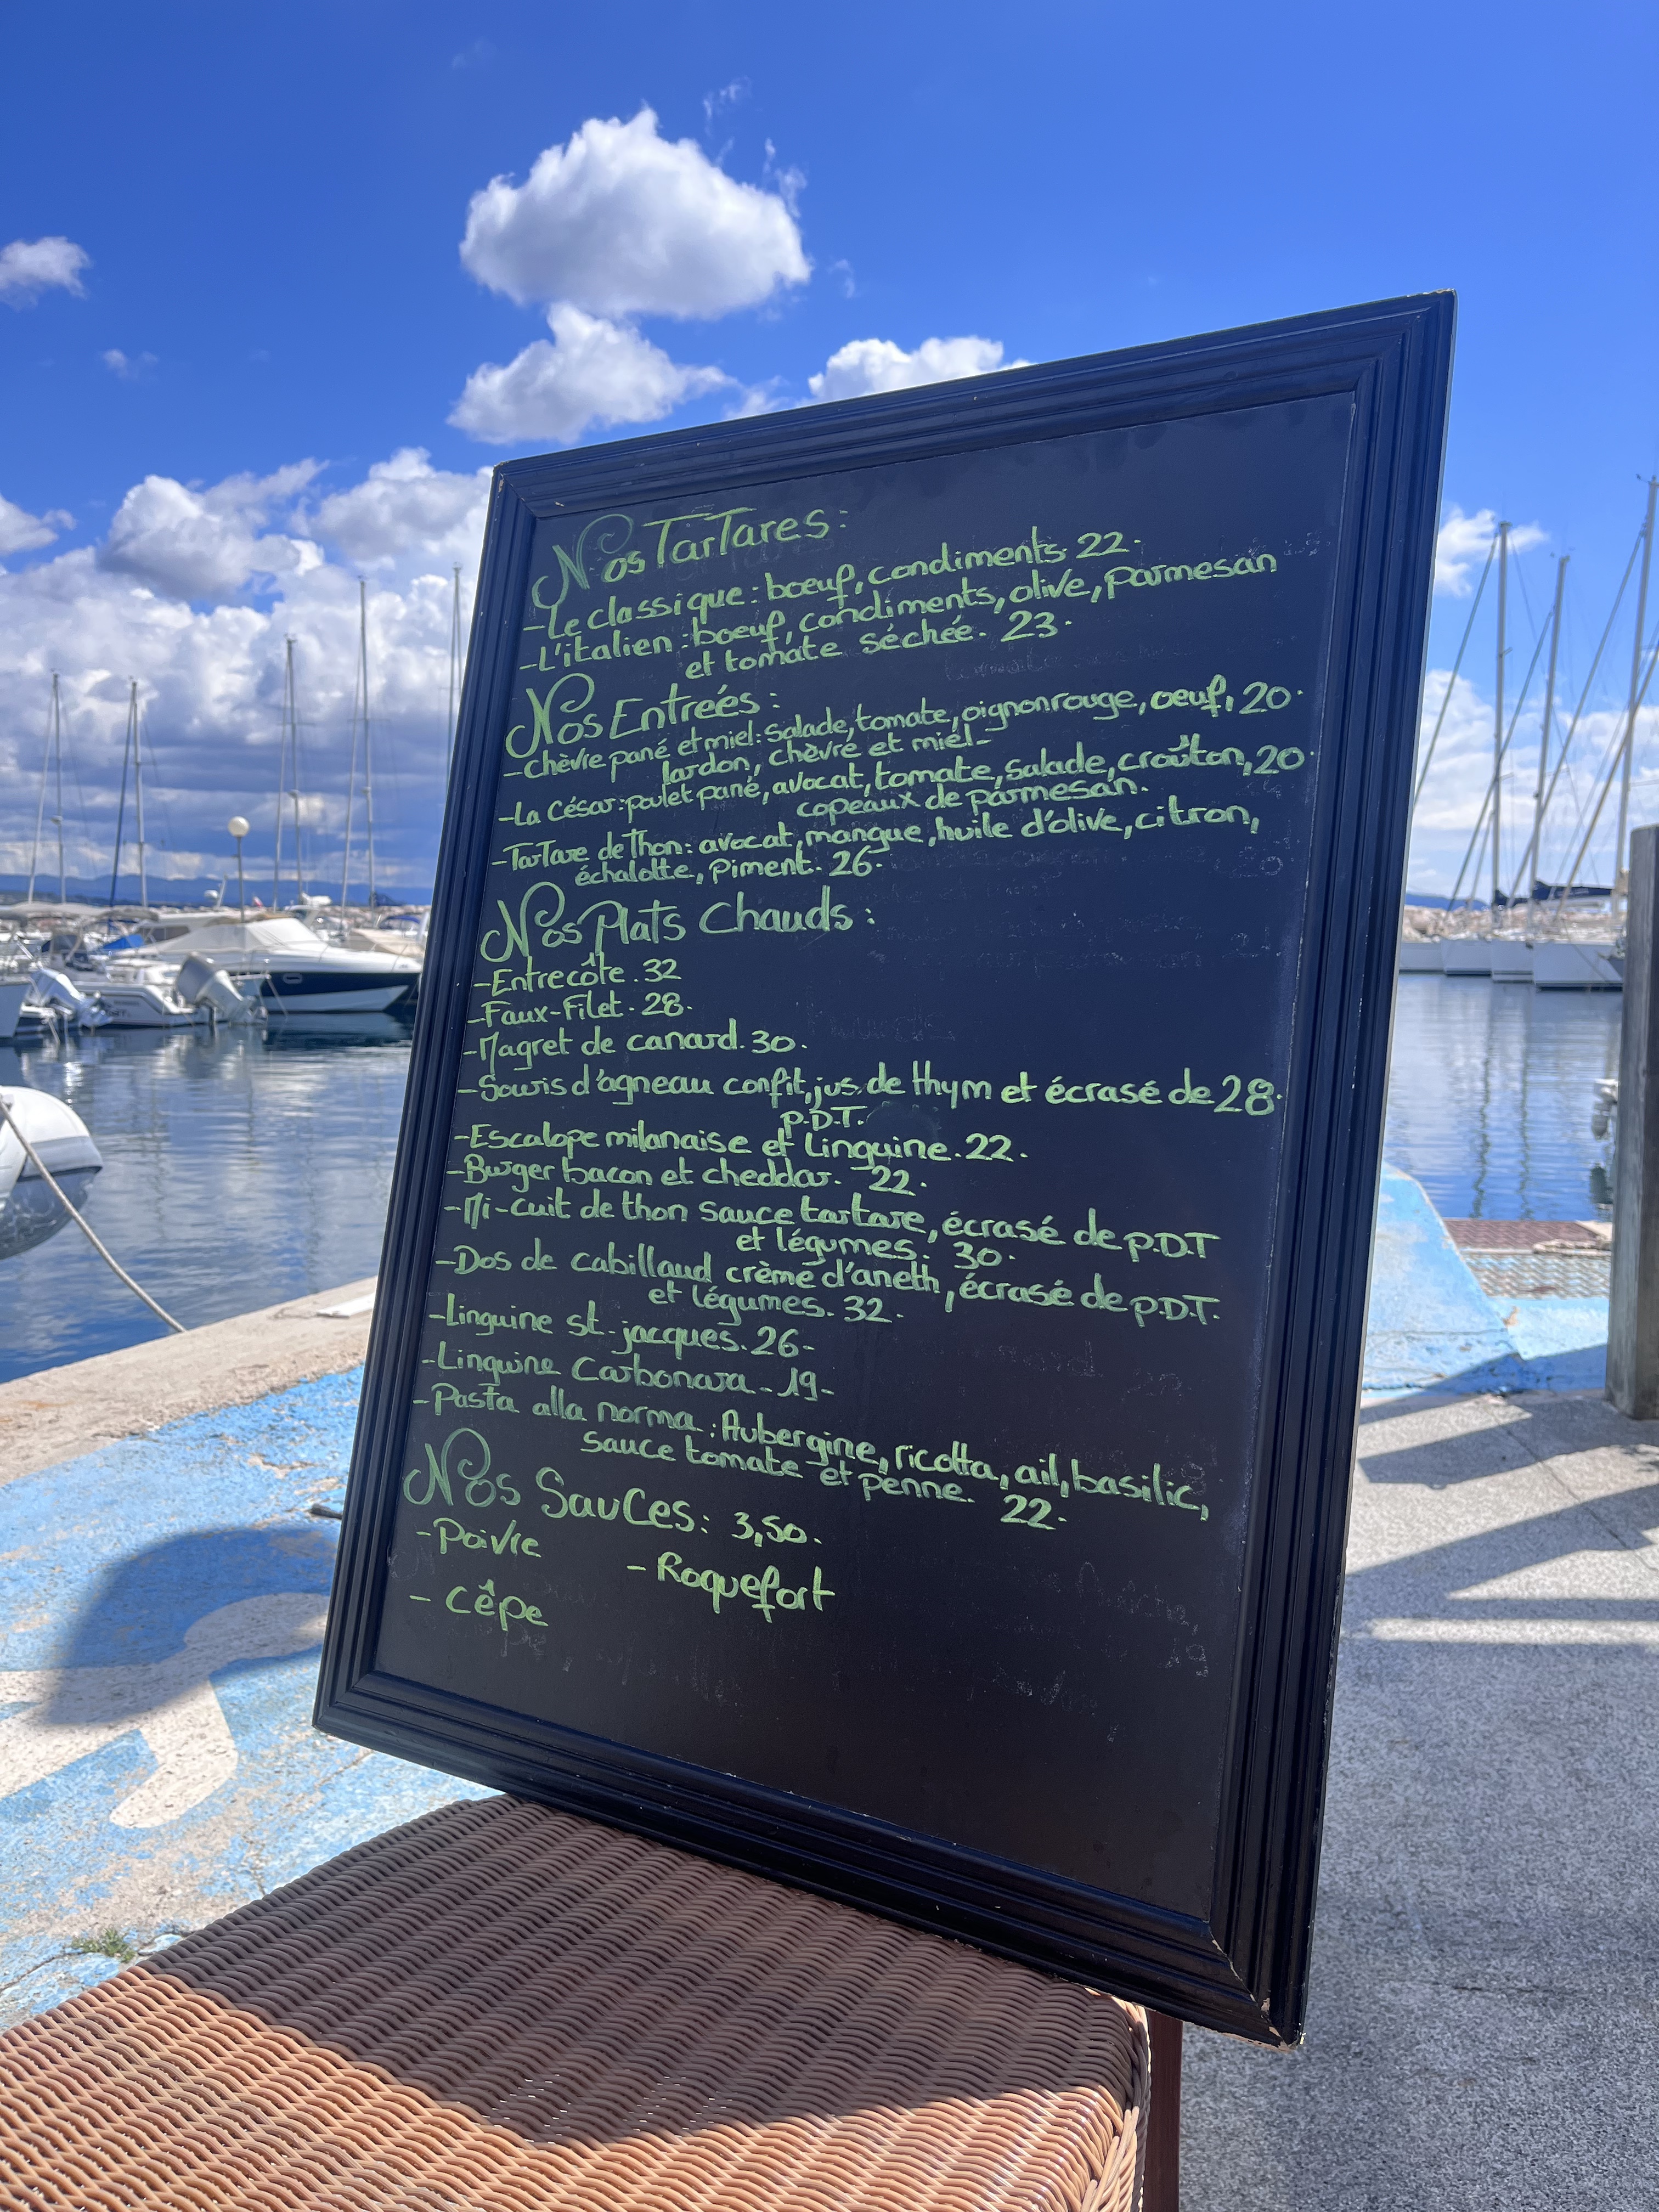 Nos TarTares:
-Le classique: boeuf, condiments 22.
-L'italien: boeuf, condiments, olive, parmesan
et tomate séchée. 23.
Nos Entreés:
-chèvre pané et miel: Salade, tomate, oignon rouge, oeuf, 20.
lardon, chèvre et miel-
-La César: poulet pané, avocat, tomate, salade, croûton, 20.
copeaux de parmesan.
-TarTare de Thon: avocat, mangue, huile d'olive, citron,
échalotte, piment. 26.
Nos Plats Chauds:
-Entrecôte. 32
-Faux-Filet. 28.
-Magret de canard. 30.
-Souris d'agneau confit, jus de thym et écrasé de 28.
P.D.T.
-Escalope milanaise et Linguine. 22.
-Burger bacon et cheddar. 22.
-Mi-cuit de thon sauce tartare, écrasé de P.D.T
et légumes. 30.
-Dos de cabillaud crème d'aneth, écrasé de P.D.T.
et légumes. 32.
-Linguine st-jacques. 26-
-Linguine Carbonara-19-
-Pasta alla norma: Aubergine, ricotta, ail, basilic,
sauce tomate et penne. 22.
Nos Sauces: 3,50.
-Poivre
-Roquefort
-Cêpe